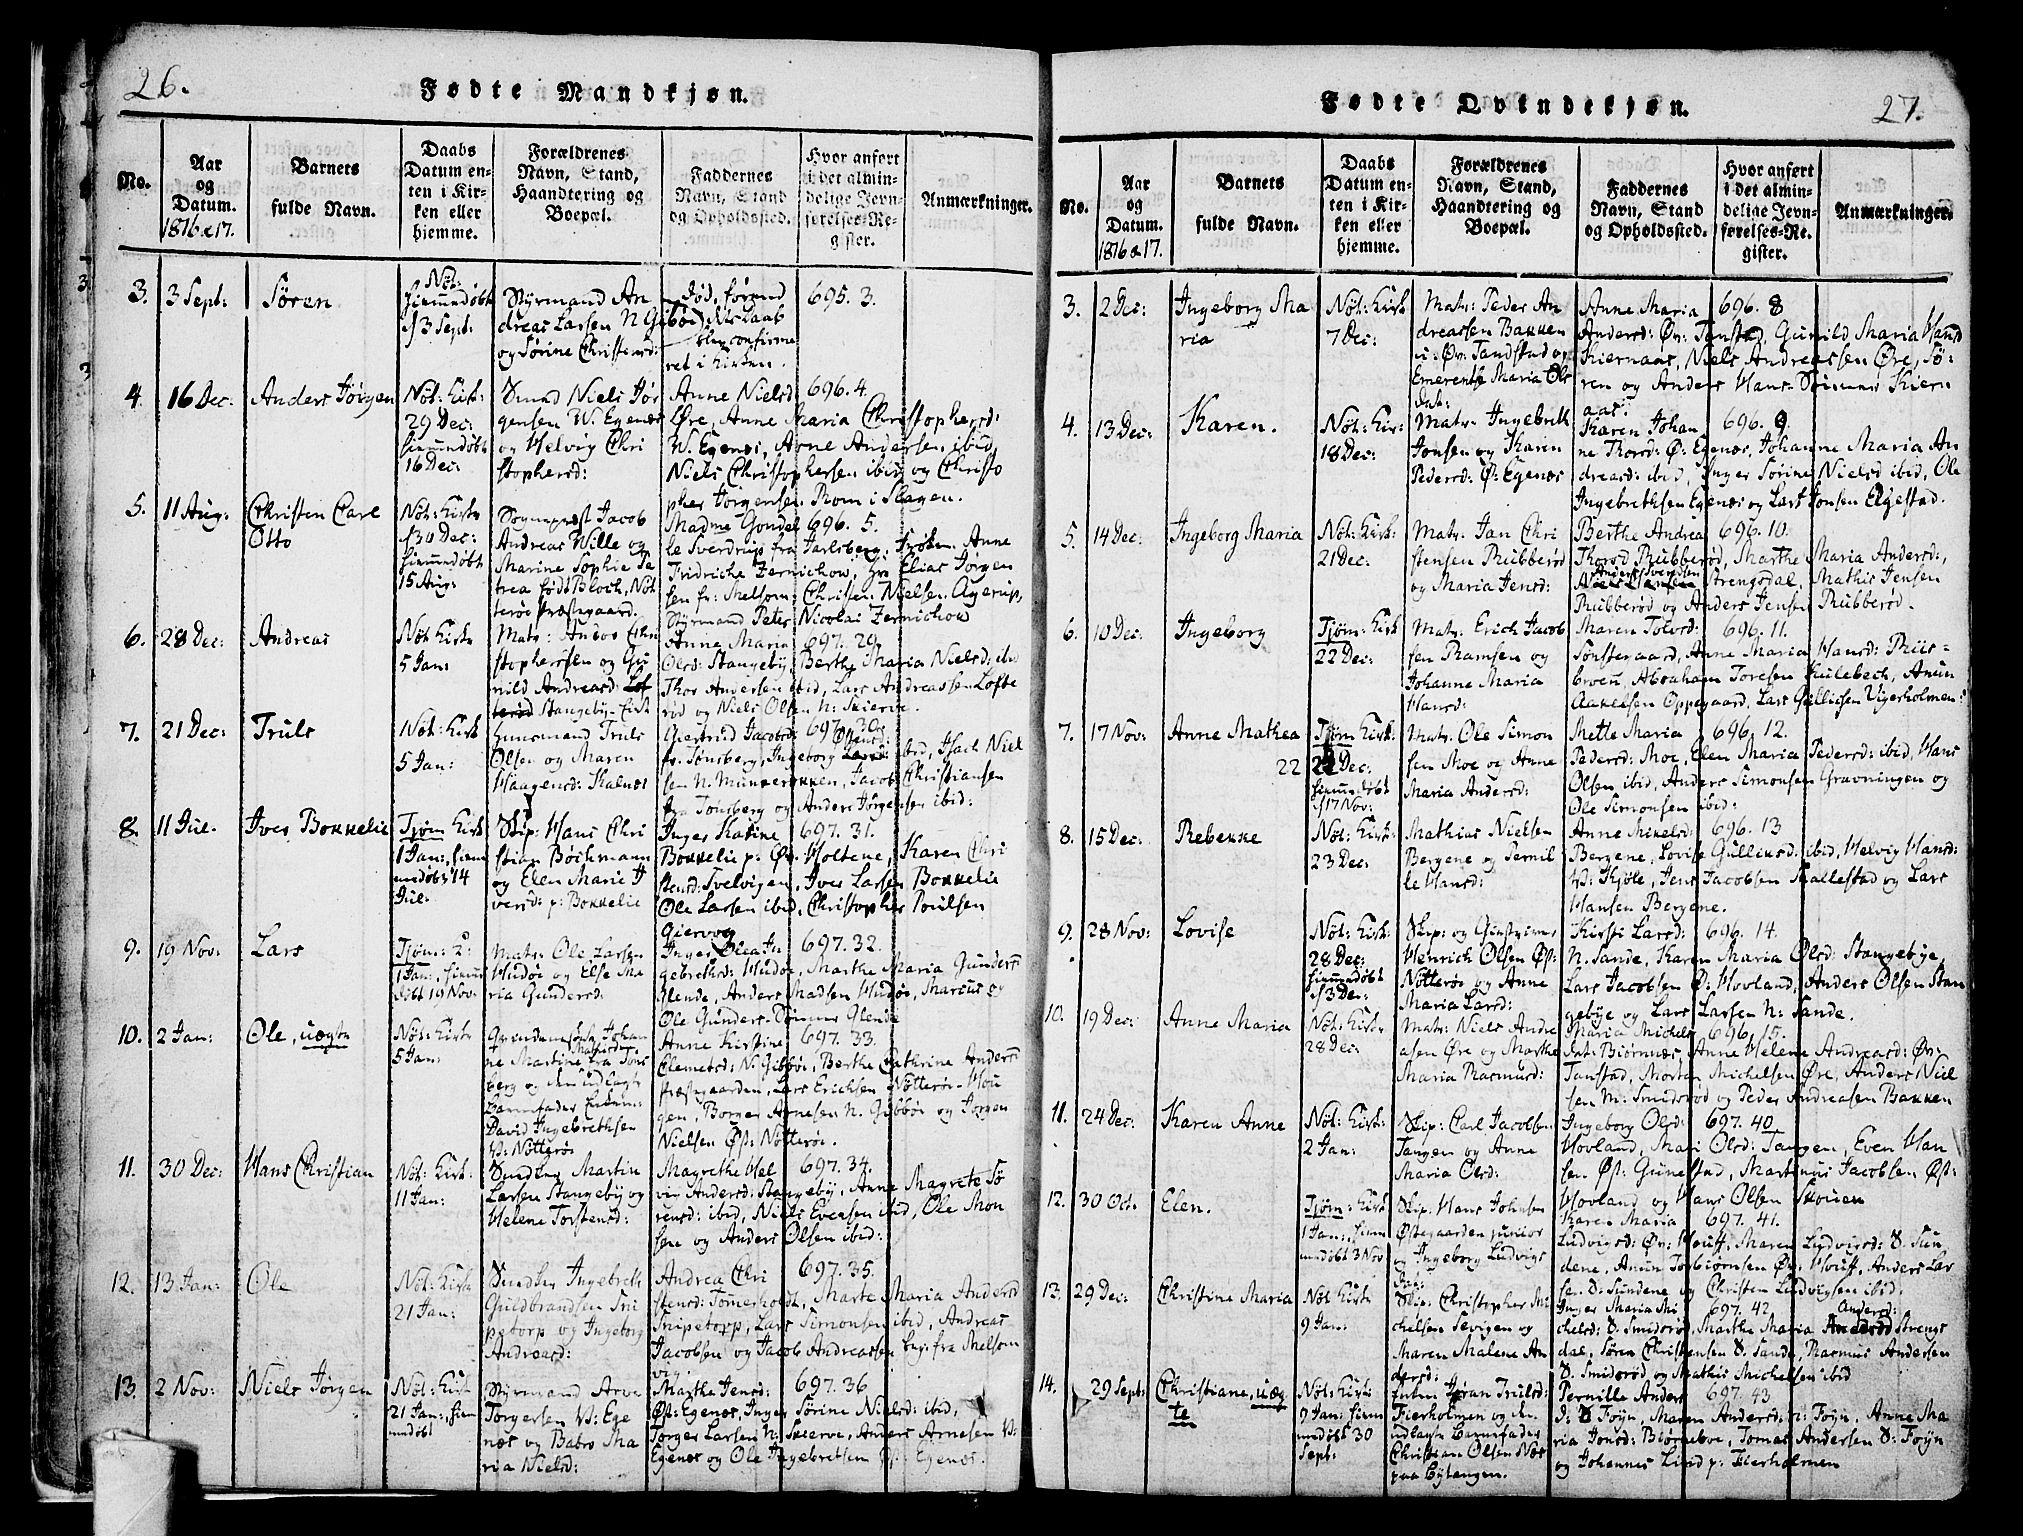 26.
Fødte Mandkjøn.
No.
Aar
og
Datum.
1816 & 17.
Barnets
fulde Navn.
Daabs
Datum en-
ten i Kir-
ken eller
hjemme.
Forældrenes
Navn, Stand,
Haandtering og
Boepæl.
Faddernes
Navn, Stand
og Opholdssted.
Hvor anført
i det almin-
delige Jevn-
førelses-Re-
gister.
Anmærkninger.
3.
3 Sept:
Sören
Nöt:
hiemmedöbt
13 Sept:
Styrmand An
dreas Larsen N Giböe
og Sörine Christensd:
död, førend
dets daab
blev confirme
ret i Kirken.
695. 3.
4.
16 Dec:
Anders Jörgen
Nöt: Kirk:
29 Dec:
hiemmedöbt
16 Dec:
Smed Niels Jör
gensen W. Egenæs
og Helvig Chri
stophersd:
Anne Nielsd:
696. 4.
Øre, Anne Maria Christophersd:
W. Egenæs, Anne Andersen ibid,
Niels Christophersen ibid og Christo
pher Jorgensen Rom i Slagen.
5.
11 Aug:
Christen Carl
Otto
Nöt: Kirke
30 Dec:
hiemmedöbt
15 Aug:
Sognepræst Jacob
Andreas Wille og
Marine Sophie Pe
trea födt Bloch, Nöt
teröe Præstegaard.
Madme Gondel
696. 5.
le Sverdrup fra Jarlsberg, Frøken Anne
Fridriche Zernichow, Hr Elias Jörgen
sen fr: Melsom, Christen Nielsen Agerup,
Styrmand Peter Nicolai Zernichow
6.
28 Dec:
Andreas
Nöt Kirke
5 Jan:
Matr: Anders Chri
stophersen og Gu
nild Andreasd:
Stangeby
Anne Maria
697. 29
Olsd: Stangeby, Berthe Maria Nielsd: ibid
Thor Andersen ibid, Lars Andreassen Lofte
röd og Niels Olsen N: Skierve.
7.
21 Dec:
Truls
Nöt: Kirk
5 Jan:
Huusmand Truls
Olsen og Maren
Haagensd: Kalnæs
Giertrud Jacobsd:
697. 30
fr: Tönsberg, Ingeborg Olsensd: ibid, Isach Niel
sen N. Munkerekken, Jacob Christiansen
fra Tonsberg og Anders Jørgensen ibid:
8.
11 Jul.
Iver Bokkelie
Tjøm Kirk
1 Jan:, hiem
medöbt 14
Jul.
Skip: Hans Chri
stian Böckmann
og Elen Marie I
versd: p: Bokkelie
Inger Katrine
697. 31.
Bokkelie p: Øv: Holtene, Karen Chri
stensd: Tvelvigen, Iver Larsen Bokkelie
Ole Larsen ibid, Christopher Poulsen
Giervog
9.
19 Nov:
Lars
Tjøm: 2:
1 Jan: hiemme
döbt 19 Nov:
Matr: Ole Larsen
Hudöe og Else Ma
ria Gundersd:
Inger Olea In
697. 32.
gebrethsd: Hudöe, Marthe Maria Gunders
Glende, Anders Madsen Hudöe, Marcus og
Ole Gunders-Sönner Glende
10.
2 Jan:
Ole, uægte
Nöt: Kirke
5 Jan:
ne Martine fra Töns
berg og den udlagte
Barnefader
David Ingebrethsen
W: Nötteröe
Anne Kirstine
697. 33.
Clemetsd: N: Gibböe, Berthe Cathrine Anders
Præstegaarden, Lars Erichsen Nötteröe-Hou
gen, Borger Arnesen N. Gibböe og Jorgen
Nielsen Øst: Nötteröe.
11.
30 Dec:
Hans Christian
Nöt: Kirk:
11 Jan:
Martin
Larsen Stangeby og
Helene Torstensd:
Magrethe Hel
697. 34.
vig Andersd: Stangeby, Anne Magrete Sö
rensd: ibid, Niels Evensen ibid, Ole Mon
sen og Anders Olsen ibid:
12.
13 Jan:
Ole
Nöt: Kirke
21 Jan:
Ingebreth
Guldbrandsen Sni
petorp og Ingeborg
Andreasd:
Andrea Chri
697. 35.
stensd: Tömerholdt, Marte Maria Andersd
Snipetorp, Lars Simonsen ibid, Andreas
Jacobsen og Jacob Andreassen fra Melsom
vig.
13.
2 Nov:
Niels Jörgen
Nöt: Kirk
21 Jan:, hiem
medöbt
Styrmand Arve
Torgersen W: Ege
næs og Babro Ma
ria Nielsd:
Marthe Jensd:
697. 36
Øst: Egenæs, Inger Sörine Nielsd: ibid,
Torger Larsen N: Skierve, Anders Arnesen W:
Egenæs og Ole Ingebretsen Øst: Egenæs.
27.
Fødte Qvindekjøn.
No.
Aar
og
Datum.
1816 & 17.
Barnets
fulde Navn.
Daabs
Datum en-
ten i Kir-
ken eller
hjemme.
Forældrenes
Navn, Stand,
Haandtering og
Boepæl.
Faddernes
Navn, Stand
og Opholdssted.
Hvor anført
i det almin-
delige Jevn-
førelses-Re-
gister.
Anmærkninger.
3.
2 Dec:
Ingeborg Ma
ria
Nöt: Kirk
7 Dec:
Matr: Peder An
dreassen Bakken
u: Øv: Tandstad og
Emerentse Maria Ols
dat:
Anne Maria
696. 8
Andersd: Øv: Tanstad, Gunild Maria Hansd
Kiernaas, Niels Andreassen Øre, Sö
ren og Anders Hans-Sönner Kiern
aas:
4.
13 Dec:
Karen.
Nöt: Kir:
18 Dec:
Matr: Ingebreth
Jonsen og Karen
Pedersd: Ø: Egenæs
Karen Johan
696. 9
ne Thorsd: Ø: Egenæs, Johanne Maria An
dreasd: ibid, Inger Sörine Nielsd ibid, Ole
Ingebrethsen Egenæs og Lars Jonsen Elgestad.
5.
14 Dec:
Ingeborg Maria
Nöt: Kirk:
21 Dec:
Matr: Jan Chri
stensen Rubberöd
og Maria Jensd:
Berthe Andrea
696. 10.
Thorsd Rubberöd, Marthe Maria Andersd:,
Strengsdal, Mathis Jensen
Rubberöd og Anders Jensen Rubberöd.
6.
10 Dec:
Ingeborg
Tjøm: Kirk
22 Dec:
Matr: Erich Jacob
sen Ramsen og
Johanne Maria
Hansd:
Maren Tolvsd:
696. 11.
Sönstegaard, Anne Maria Hansd: Riis-
broen, Abraham Toresen Kulebech, Amun
Aanelsen Oppegaard, Lars Gullichsen Vigerholmen:
7.
17 Nov:
Anne Mathea
Tjøm: Kirk
22
Dec:
hiemmedöbt
17 Nov:
Matr: Ole Simon
sen Moe og Anne
Maria Andersd:
Mette Maria
696. 12.
Pedersd: Moe, Elen Maria Pedersd: ibid, Hans
Olsen ibid, Anders Simonsen Gravningen og
Ole Simonsen ibid:
8.
15 Dec:
Rebekke
Nöt: Kirk:
23 Dec:
Mathias Nielsen
Bergene og Pernil
le Hansd:
Anne Mikelsd:
696. 13
Bergene, Lovise Gulliksd: ibid, Helvig Hansd:
W: Kjöle, Jens Jacobsen Mallestad og Lars
Hansen Bergene.
9.
28 Nov:
Lovise
Nöt: Kirk:
28 Dec:
hiemmedöbt
3 Dec:
Skip: og
Henrich Olsen Øst:
Nötteröe og Anne
Maria Larsd:
Kirsti Larsd:
696. 14.
N. Sande, Karen Maria Olsd: Stangebye,
Lars Jacobsen Ø: Hovland, Anders Olsen Stan
gebye og Lars Larsen N: Sande.
10.
19 Dec:
Anne Maria
Nöt: Kirk:
28 Dec:
Matr: Niels Andre
asen Øre og Marthe
Maria Rasmusd:
Maria Michels
696. 15.
dat: Biörnæs, Anne Helene Andreasd: Øv:
Tanstad, Morten Michelsen Øre, Anders Niel
sen M: Smidsröd og Peder Andreasen Bakken
11.
24 Dec:
Karen Anne
Nöt: Kirk:
2 Jan:
Skip: Carl Jacobsen
Tangen og Anne
Maria Olsd:
Ingeborg Olsd:
697. 40
Hovland, Mari Olsd: Tangen, Even Han
sen Øst: Gunestad, Martinus Jacobsen Øst:
Hovland og Hans Olsen Skouen
12.
30 Oct.
Elen.
Tjøm: Kirk
1 Jan:, hiem
medöbt 3 Nov
Skip: Hans Johnsen
Østegaarden junior
og Ingeborg Ludvigs
Dat:
Karen Maria
697. 41.
Ludvigsd: Øv: Houff, Maren Ludvigsd: Ø. Sun
dene, Anun Torbiörnsen Øv: Houff, Anders Lar
sen Ø: Sundene og Christen Ludvigsen ibid.
13.
29 Dec:
Christine Maria
Nöt Kirke
9 Jan:
Skip: Christopher Mi
chelsen Tevigen og
Maren Malene An
dersd:
Inger Maria Mi
697. 42.
chelsd: Ø. Smidsröd, Marthe Maria Andersd: Strengs
dae, Sören Christensen Ø. Sande, Rasmus Andersen
Ø. Smidsröd og Mathis Michelsen ibid
14.
29 Sept:
Christiane, uæg
te
Nöt: Kirke
9 Jan: hiem
medöbt 30
Sept:
Enken Jöran Trulsd:
Fierholmen og den
udlagte Barnefader
Christian Olsen Næs
paa Bytangen.
Pernille Anders
697. 43
D: Ø Foÿn, Maren Andersd: n: Foÿn, Anne Ma
ria Jonsd: Biörneboe, Tomas Andersen Ø: Foÿn
og Johannes Lind p: Fierholmen